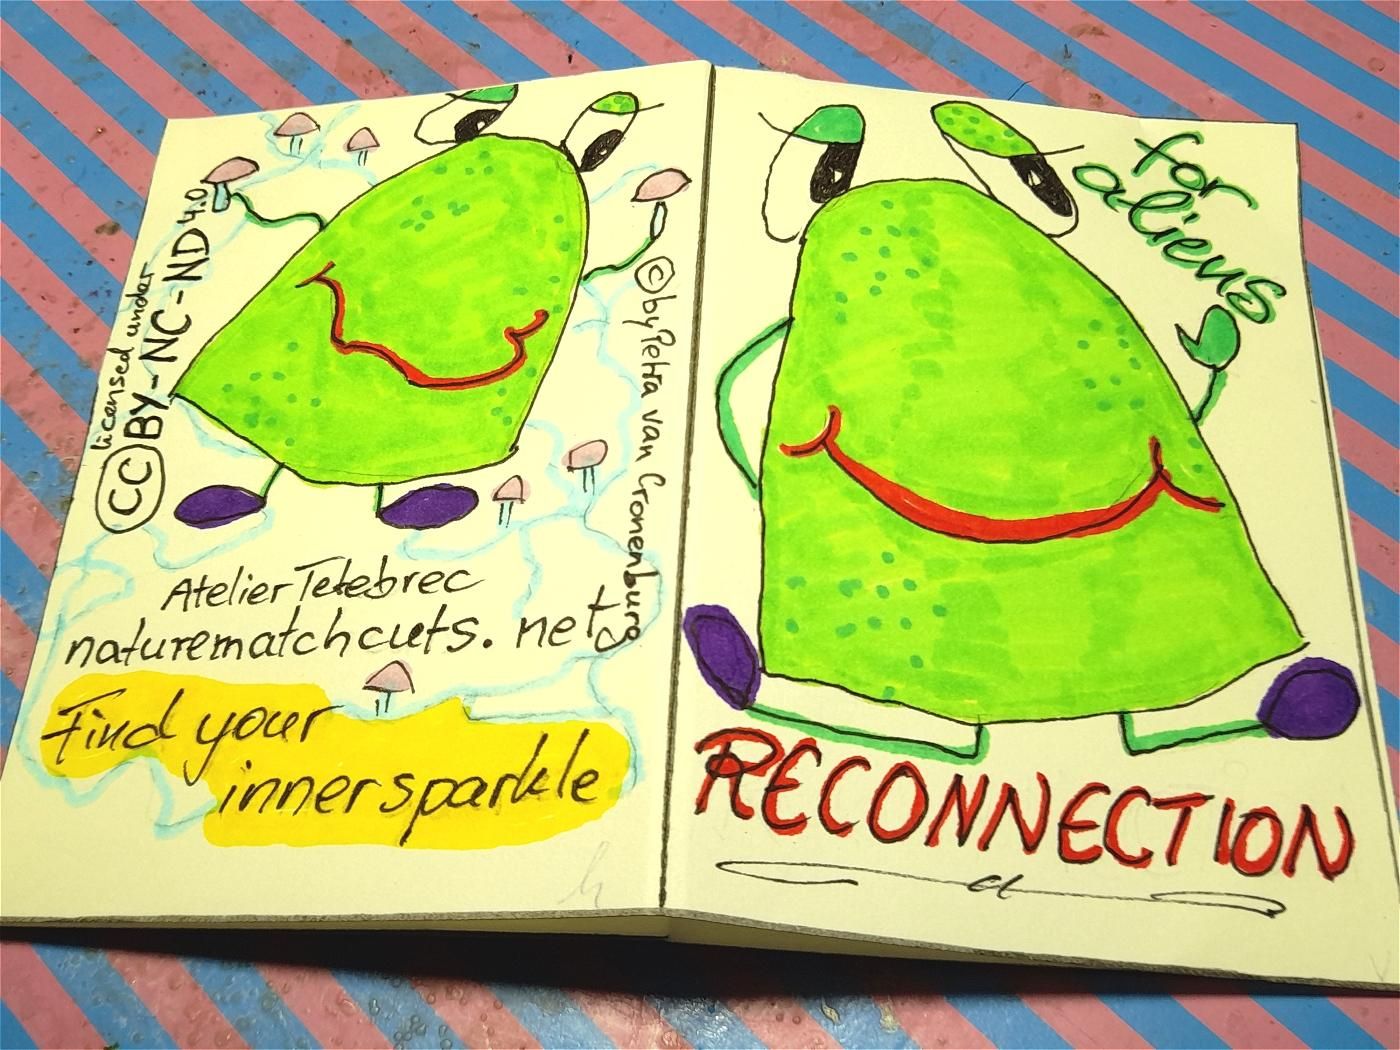 licensed under
CC BY-NC-ND 4.0
© by Petra van Cronenburg
Atelier Tetebrec
naturematchcuts.net
Find your
inner sparkle
for
aliens
RECONNECTION